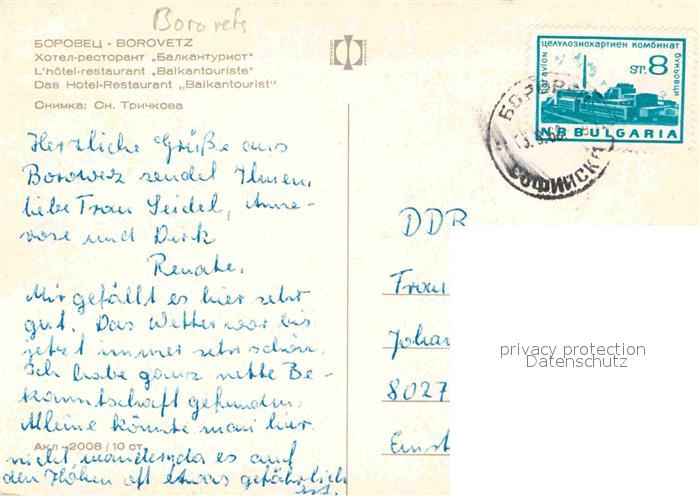 Borovets
БОРОВЕЦ - BOROVETZ
Хотел-ресторант „Балкантурист"
L'hôtel-restaurant „Balkantouriste"
Das Hotel-Restaurant „Balkantourist"
Снимка: Сн. Тричкова
Herzliche Grüße aus
Borowez sendet Ihnen,
liebe Frau Seidel, Anne-
rose und Dirk
Renate.
Mir gefällt es hier sehr
gut. Das Wetter war bis
jetzt immer sehr schön.
Ich habe ganz nette Be-
kanntschaft gefunden.
Alleine könnte man hier
Акл-2008/10 ст.
nicht wandern, da es auf
den Höhen oft etwas gefährlich
ist.
целулознохартиен комбинат
par avion
ST. 8
БУКЬОВЦИ
NR BULGARIA
БОРОВЕЦ
СОФИЙСКА
DDR
Frau
Johan
8027
Einst
privacy protection
Datenschutz